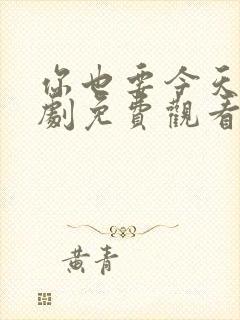 你也要今天
劇免費觀看
黃青